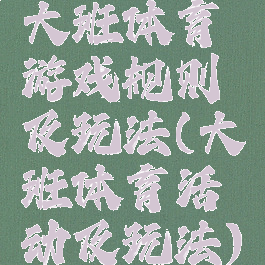 大班体育
游戏规则
及玩法(大
班体育活
动及玩法)